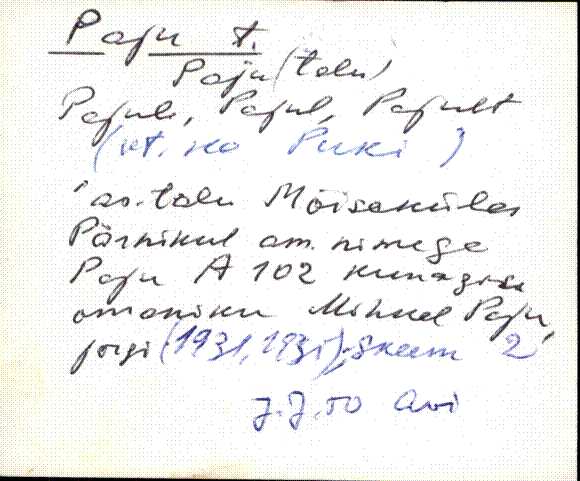 Paju t.
Paju (talu)
Pajule, Pajul, Pajult
(vt. ka Puki)
as. talu Mõisakülas
Pärnikul am. nimega
Paju A 102 kunagise
omaniku Mihkel Paju,
järgi (1931, 1931), Skeem 2
J.J.